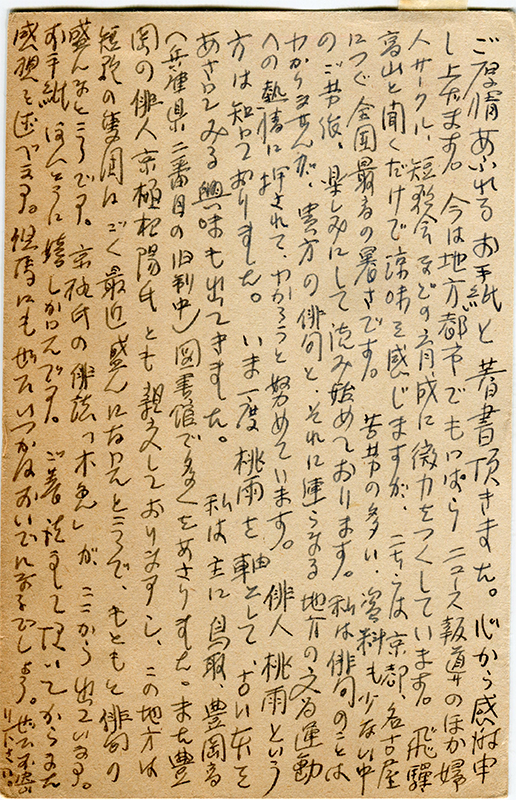 ご厚情あふれるお手紙と著書頂きました。心から感謝申
し上げます。今は地方都市でもっぱらニュース報道のほか婦
人サークル、短歌会などの育成に微力をつくしています。飛騨
高山と聞くだけで涼味を感じますが、こちらは京都、名古屋
につぐ全国最高の暑さです。苦労の多い、資料も少ない中
のご労作、楽しみにして読み始めております。私は俳句のことは
わかりませんが、貴方の俳句と、それに連らなる地方の文学運動
への熱情に押されて、わかろうと努めています。俳人桃雨という
方は知っておりました。いま一度桃雨を軸として、古い本を
あさってみる興味も出てきました。私は主に鳥取、豊岡高
(兵庫県二番目の旧制中)図書館で多くをあさりました。また豊
岡の俳人京極杞陽氏とも親交しておりますし、この地方は
短歌の隆周はごく最近盛んになったところで、もともと俳句の
盛んなところです。京極氏の俳誌「木兎」が、ここから出ています。
お手紙ほんとうに嬉しかったです。ご著読ませて頂いてからまた
感想を述べます。但馬にもぜひいつかはおいでになるでしょう。ぜひお立